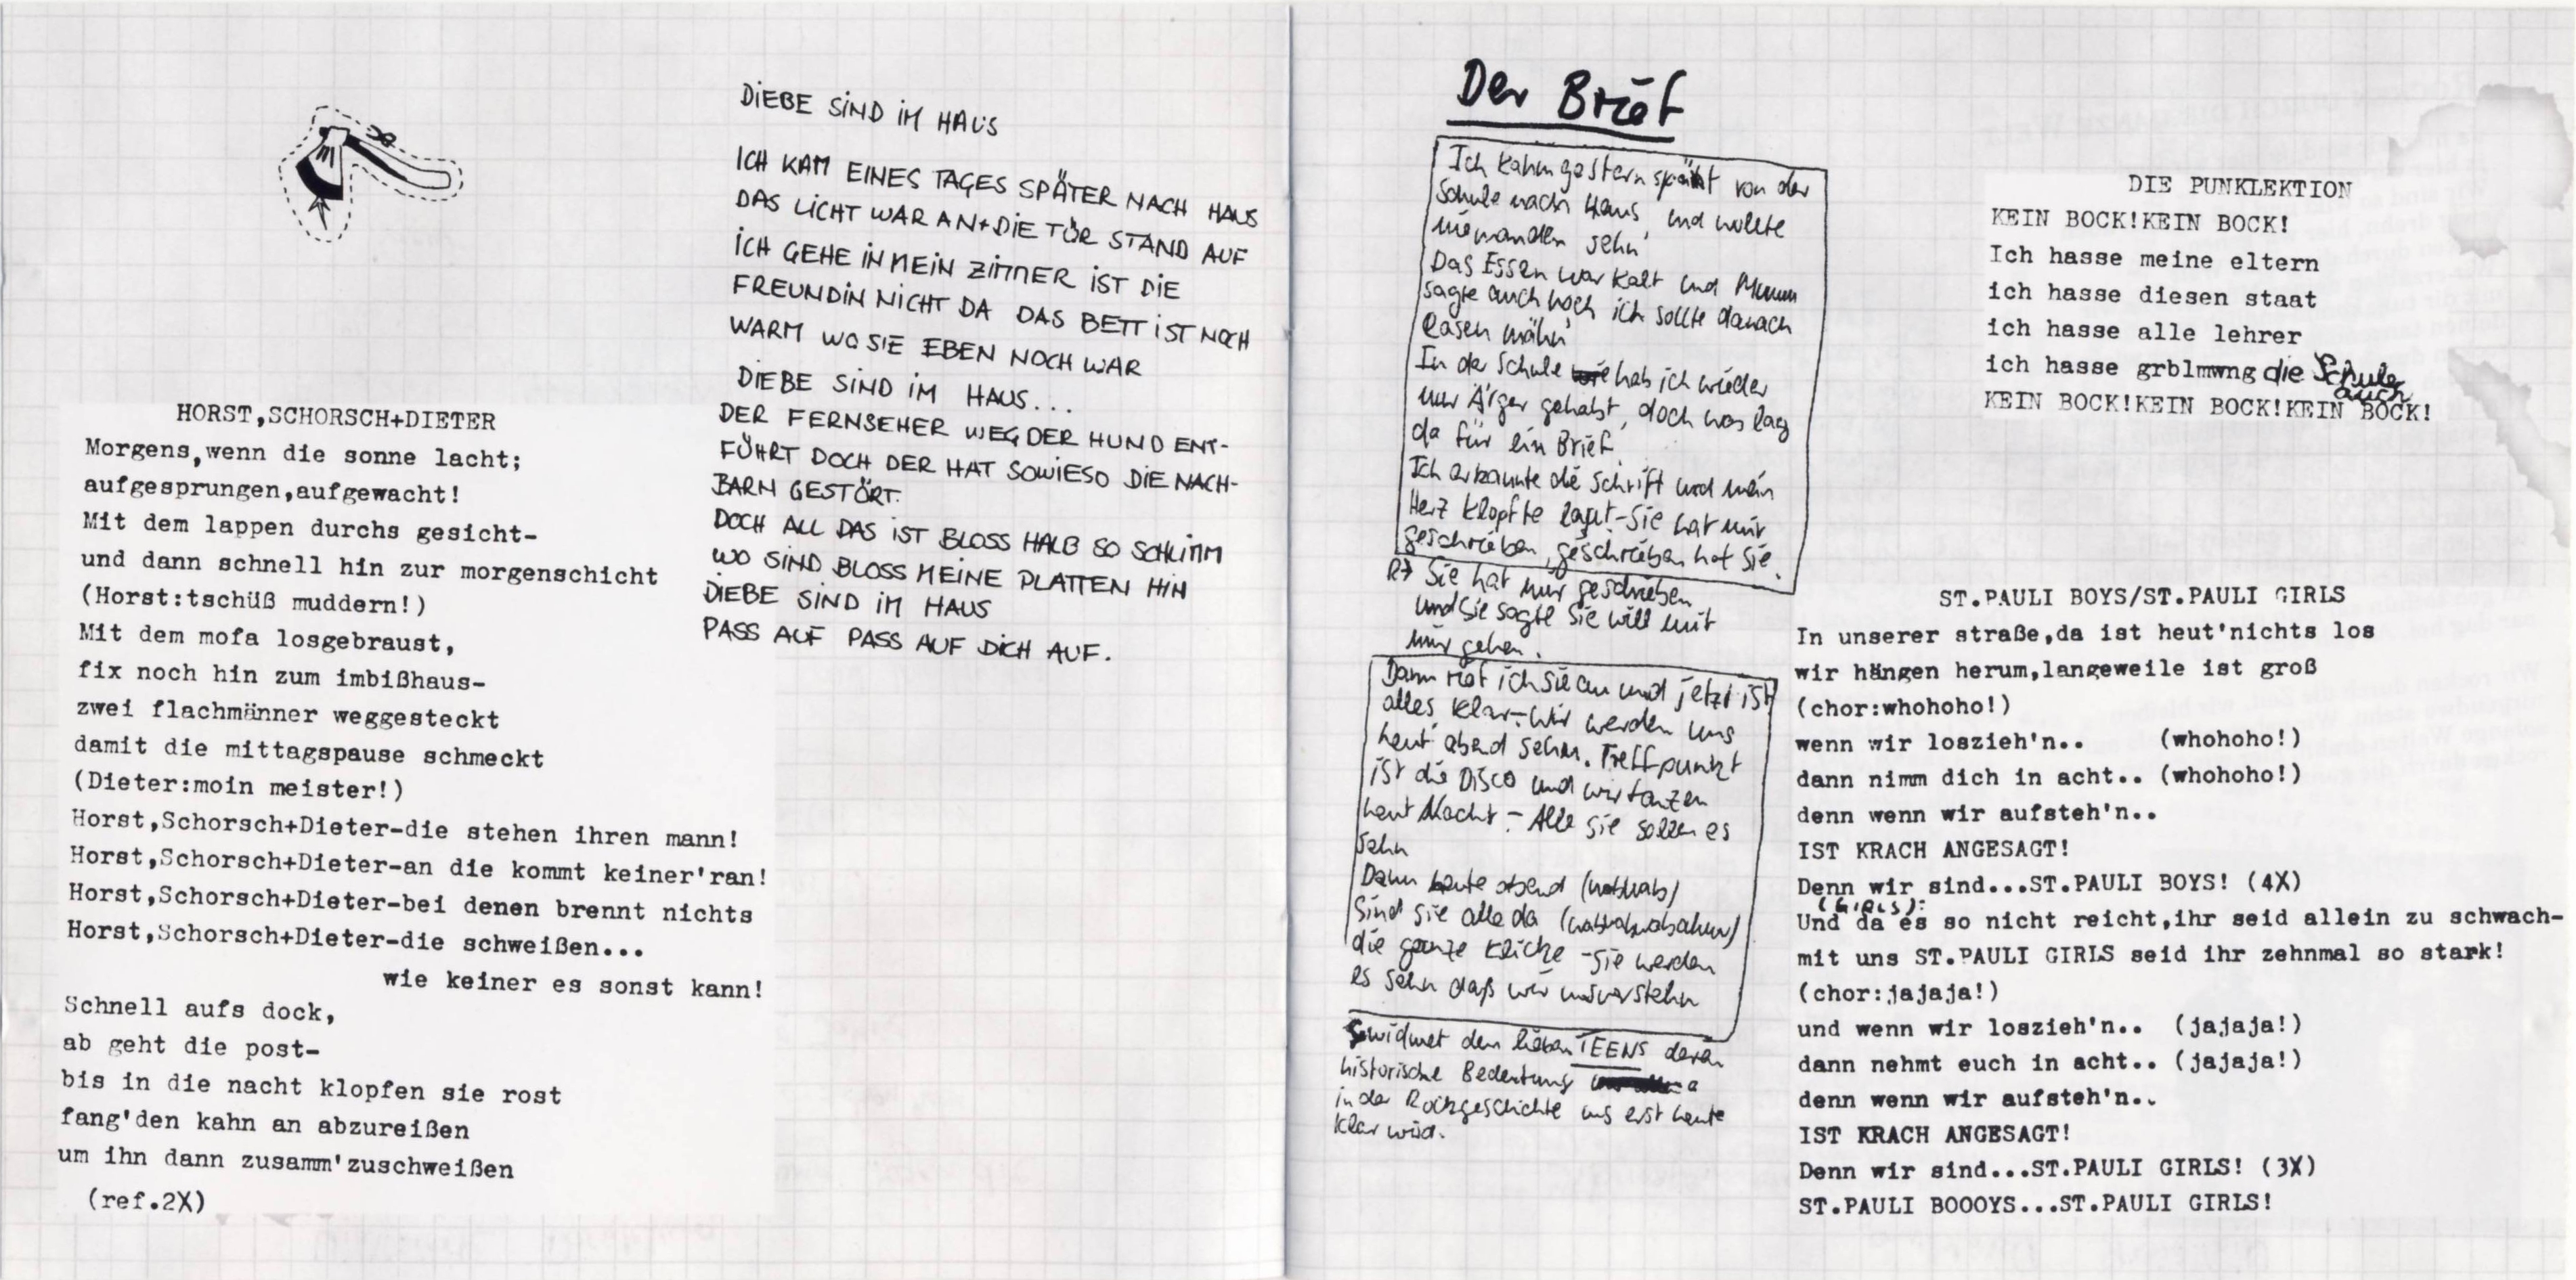 HORST,SCHORSCH+DIETER
Morgens,wenn die sonne lacht;
aufgesprungen,aufgewacht!
Mit dem lappen durchs gesicht-
und dann schnell hin zur morgenschicht
(Horst:tschüß muddern!)
Mit dem mofa losgebraust,
fix noch hin zum imbißhaus-
zwei flachmänner weggesteckt
damit die mittagspause schmeckt
(Dieter:moin meister!)
Horst,Schorsch+Dieter-die stehen ihren mann!
Horst,Schorsch+Dieter-an die kommt keiner'ran!
Horst,Schorsch+Dieter-bei denen brennt nichts
Horst,Schorsch+Dieter-die schweißen...
wie keiner es sonst kann!
Schnell aufs dock,
ab geht die post-
bis in die nacht klopfen sie rost
fang'den kahn an abzureißen
um ihn dann zusamm'zuschweißen
(ref.2X)
DIEBE SIND IM HAUS
ICH KAM EINES TAGES SPÄTER NACH HAUS
DAS LICHT WAR AN+DIE TÜR STAND AUF
ICH GEHE IN MEIN ZIMMER IST DIE
FREUNDIN NICHT DA DAS BETT IST NOCH
WARM WO SIE EBEN NOCH WAR
DIEBE SIND IM HAUS...
DER FERNSEHER WEG DER HUND ENT-
FÜHRT DOCH DER HAT SOWIESO DIE NACH-
BARN GESTÖRT.
DOCH ALL DAS IST BLOSS HALB SO SCHLIMM
WO SIND BLOSS MEINE PLATTEN HIN
DIEBE SIND IM HAUS
PASS AUF PASS AUF DICH AUF.
Der Brief
Ich kahm gestern spät von der
Schule nach Haus, und wollte
niemanden sehn'
Das Essen war kalt und Mumm
sagte auch noch ich sollte danach
Rasen mähn'
In der Schule hab ich wieder
nur Ärger gehabt, doch was lag
da für ein Brief
Ich erkannte die Schrift und mein
Herz klopfte laut-Sie hat mir
geschrieben, geschrieben hat sie.
R→ Sie hat mir geschrieben
und sie sagte sie will mit
mir gehen.
Dann rief ich sie an und jetzt ist
alles klar-Wir werden uns
heut' abend sehn. Treffpunkt
ist die Disco und wir tanzen
heut Nacht - Alle sie sollen es
sehn
Dann heute abend
Sind sie alle da
die ganze Kliche - Sie werden
es sehn daß wir uns verstehn
Gewidmet den lieben TEENS deren
historische Bedeutung
in der Rockgeschichte uns erst heute
klar wird.
DIE PUNKLEKTION
KEIN BOCK!KEIN BOCK!
Ich hasse meine eltern
ich hasse diesen staat
ich hasse alle lehrer
ich hasse grblmwng die Schule
auch
KEIN BOCK!KEIN BOCK!KEIN BOCK!
ST.PAULI BOYS/ST.PAULI GIRLS
In unserer straße,da ist heut'nichts los
wir hängen herum,langeweile ist groß
(chor:whohoho!)
wenn wir loszieh'n.. (whohoho!)
dann nimm dich in acht.. (whohoho!)
denn wenn wir aufsteh'n..
IST KRACH ANGESAGT!
Denn wir sind...ST.PAULI BOYS! (4X)
(GIRLS):
Und da es so nicht reicht,ihr seid allein zu schwach-
mit uns ST.PAULI GIRLS seid ihr zehnmal so stark!
(chor:jajaja!)
und wenn wir loszieh'n.. (jajaja!)
dann nehmt euch in acht.. (jajaja!)
denn wenn wir aufsteh'n..
IST KRACH ANGESAGT!
Denn wir sind...ST.PAULI GIRLS! (3X)
ST.PAULI BOOOYS...ST.PAULI GIRLS!